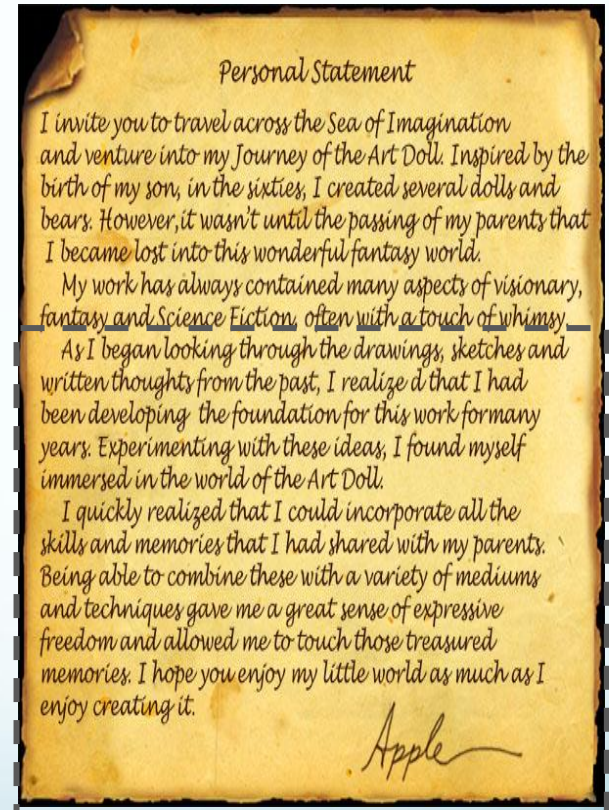 Personal Statement
I invite you to travel across the Sea of Imagination
and venture into my Journey of the Art Doll. Inspired by the
birth of my son, in the sixties, I created several dolls and
bears. However,it wasn't until the passing of my parents that
I became lost into this wonderful fantasy world.
My work has always contained many aspects of visionary,
fantasy and Science Fiction, often with a touch of whimsy.
As I began looking through the drawings, sketches and
written thoughts from the past, I realize d that I had
been developing the foundation for this work formany
years. Experimenting with these ideas, I found myself
immersed in the world of the Art Doll.
I quickly realized that I could incorporate all the
skills and memories that I had shared with my parents.
Being able to combine these with a variety of mediums
and techniques gave me a great sense of expressive
freedom and allowed me to touch those treasured
memories. I hope you enjoy my little world as much as I
enjoy creating it.
Apple